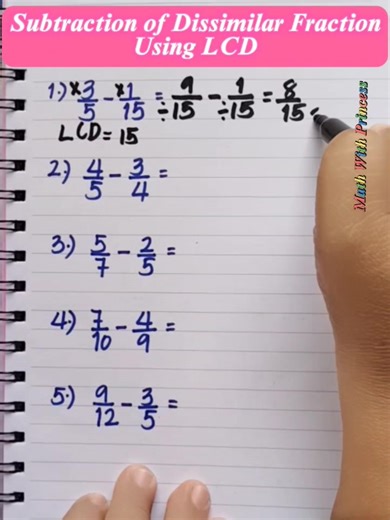 Subtraction of Dissimilar Fraction
Using LCD
1.) ×3/5 - ×1/15 = 9/÷15 - 1/÷15 = 8/15
LCD = 15
2.) 4/5 - 3/4 =
3.) 5/7 - 2/5 =
4.) 7/10 - 4/9 =
5.) 9/12 - 3/5 =
Math With Princess